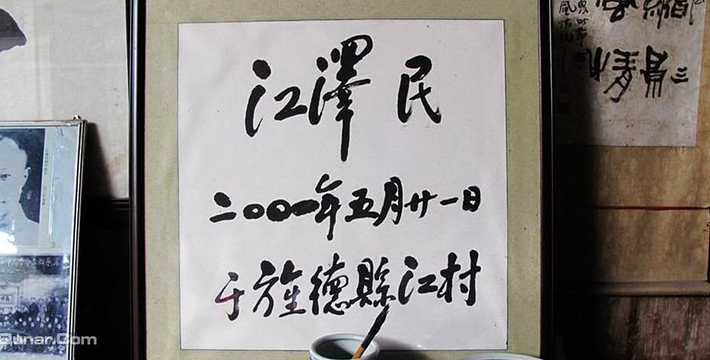 江澤 民
二〇〇一年五月廿一日
于旌德縣江村
Qunar.Com